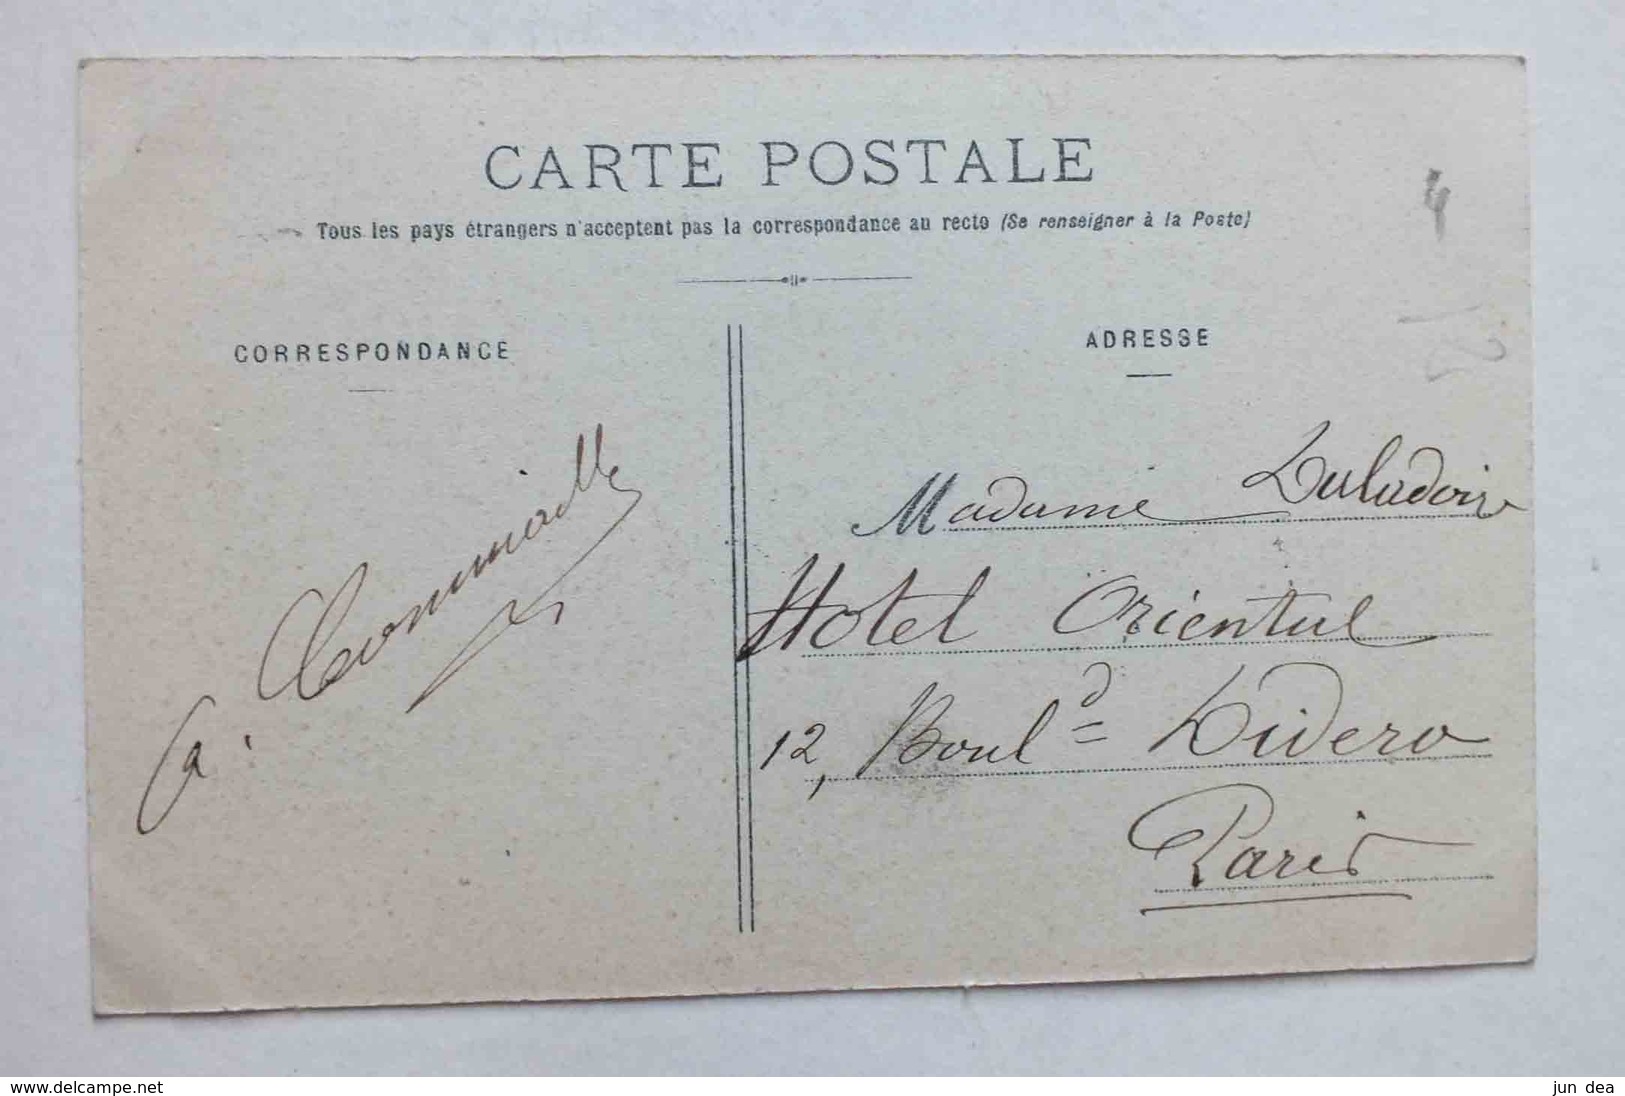 CARTE POSTALE
Tous les pays étrangers n'acceptent pas la correspondance au recto (Se renseigner à la Poste)
CORRESPONDANCE
ADRESSE
4
Madame
Hotel Oriental
12, Boul^d Didero
Paris
www.delcampe.net
jun dea